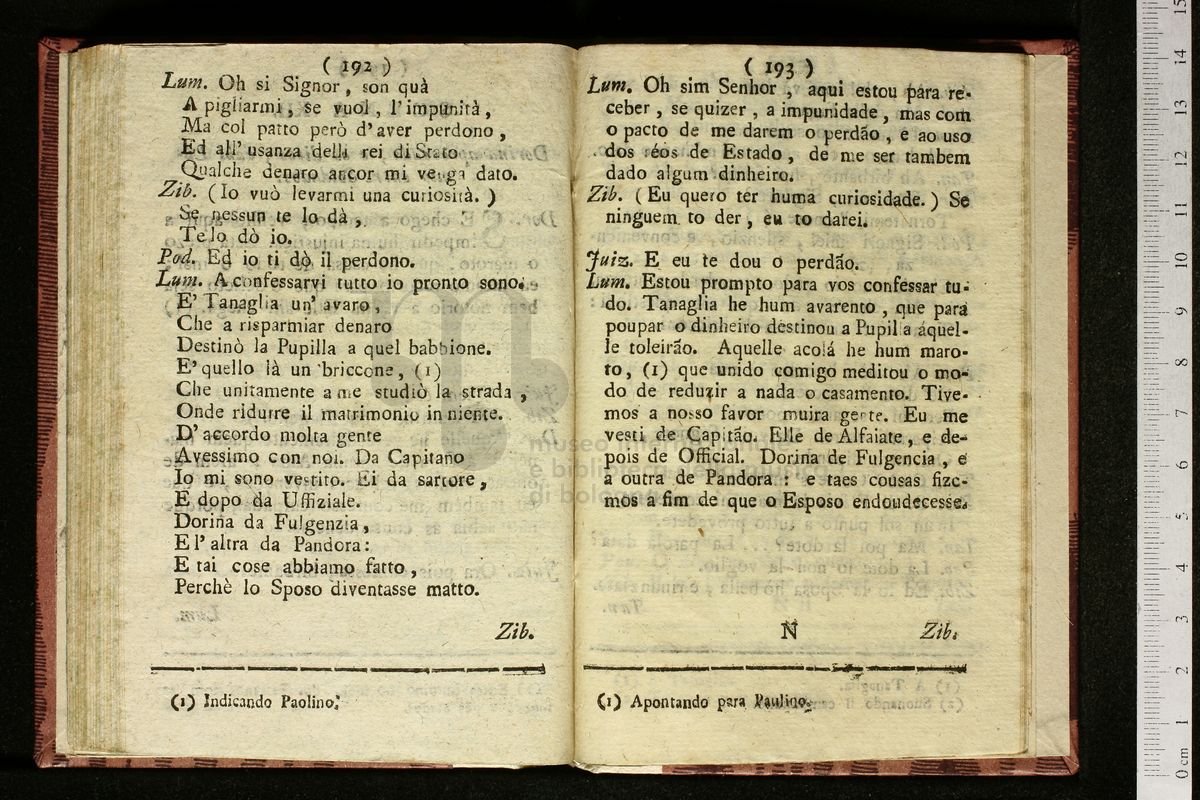 ( 192 )
Lum. Oh si Signor, son quà
A pigliarmi, se vuol, l'impunità,
Ma col patto però d'aver perdono,
Ed all'usanza delli rei di Stato
Qualche denaro ancor mi venga dato.
Zib. (Io vuò levarmi una curiosità.)
Se nessun te lo dà,
Te lo dò io.
Pod. Ed io ti dò il perdono.
Lum. A confessarvi tutto io pronto sono.
E' Tanaglia un' avaro,
Che a risparmiar denaro
Destinò la Pupilla a quel babbione.
E' quello là un briccone, (1)
Che unitamente a me studiò la strada,
Onde ridurre il matrimonio in niente.
D'accordo molta gente
Avessimo con noi. Da Capitano
Io mi sono vestito. Ei da sartore,
E dopo da Uffiziale.
Dorina da Fulgenzia,
E l'altra da Pandora:
E tai cose abbiamo fatto,
Perchè lo Sposo diventasse matto.
Zib.
(1) Indicando Paolino.
( 193 )
Lum. Oh sim Senhor, aqui estou para re-
ceber, se quizer, a impunidade, mas com
o pacto de me darem o perdão, e ao uso
dos réos de Estado, de me ser tambem
dado algum dinheiro.
Zib. (Eu quero ter huma curiosidade.) Se
ninguem to der, eu to darei.
Juiz. E eu te dou o perdão.
Lum. Estou prompto para vos confessar tu-
do. Tanaglia he hum avarento, que para
poupar o dinheiro destinou a Pupilla áquel-
le toleirão. Aquelle acolá he hum maro-
to, (1) que unido comigo meditou o mo-
do de reduzir a nada o casamento. Tive-
mos a nosso favor muita gente. Eu me
vesti de Capitão. Elle de Alfaiate, e de-
pois de Official. Dorina de Fulgencia, e
a outra de Pandora: e taes cousas fize-
mos a fim de que o Esposo endoudecesse.
N Zib.
(1) Apontando para Paulino.
museo internazionale
e biblioteca della musica
di bologna
0 cm 1 2 3 4 5 6 7 8 9 10 11 12 13 14 15